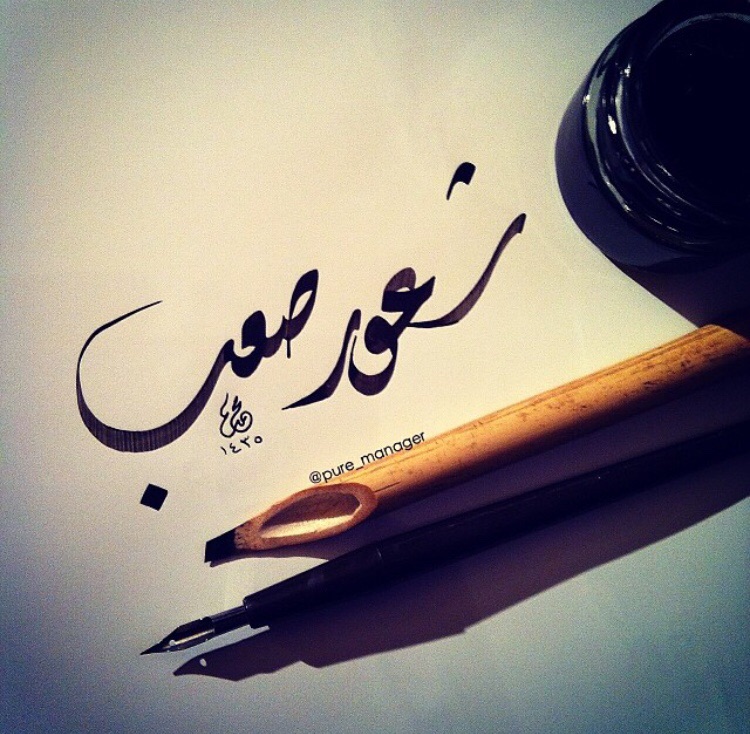 شعور صعب
١٤٣٥
@pure_manager